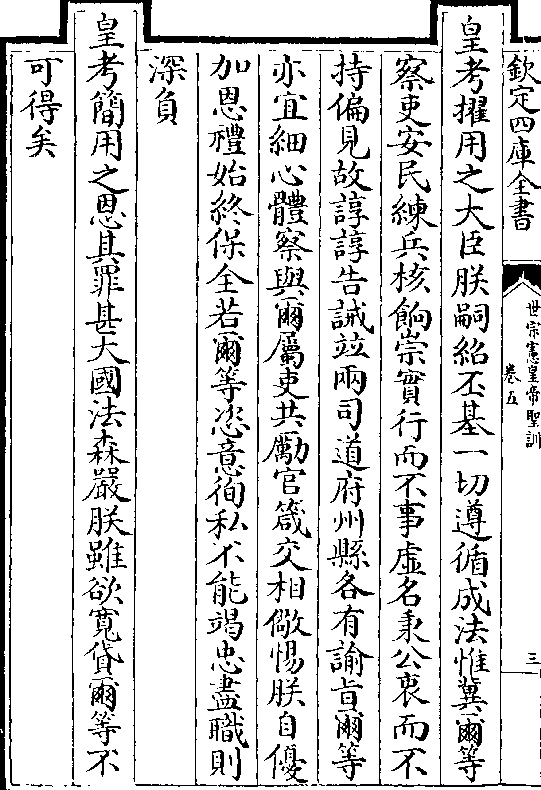 欽定四庫全書
世宗憲皇帝聖訓
卷五
三
皇考擢用之大臣朕嗣紹丕基一切遵循成法惟冀爾等
察吏安民練兵核餉崇實行而不事虛名秉公衷而不
持偏見故諄諄告誡竝兩司道府州縣各有諭㫖爾等
亦宜細心體察與爾屬吏共勵官箴交相儆惕朕自優
加恩禮始終保全若爾等恣意徇私不能竭忠盡職則
深負
皇考簡用之恩其罪甚大國法森嚴朕雖欲寬貸爾等不
可得矣